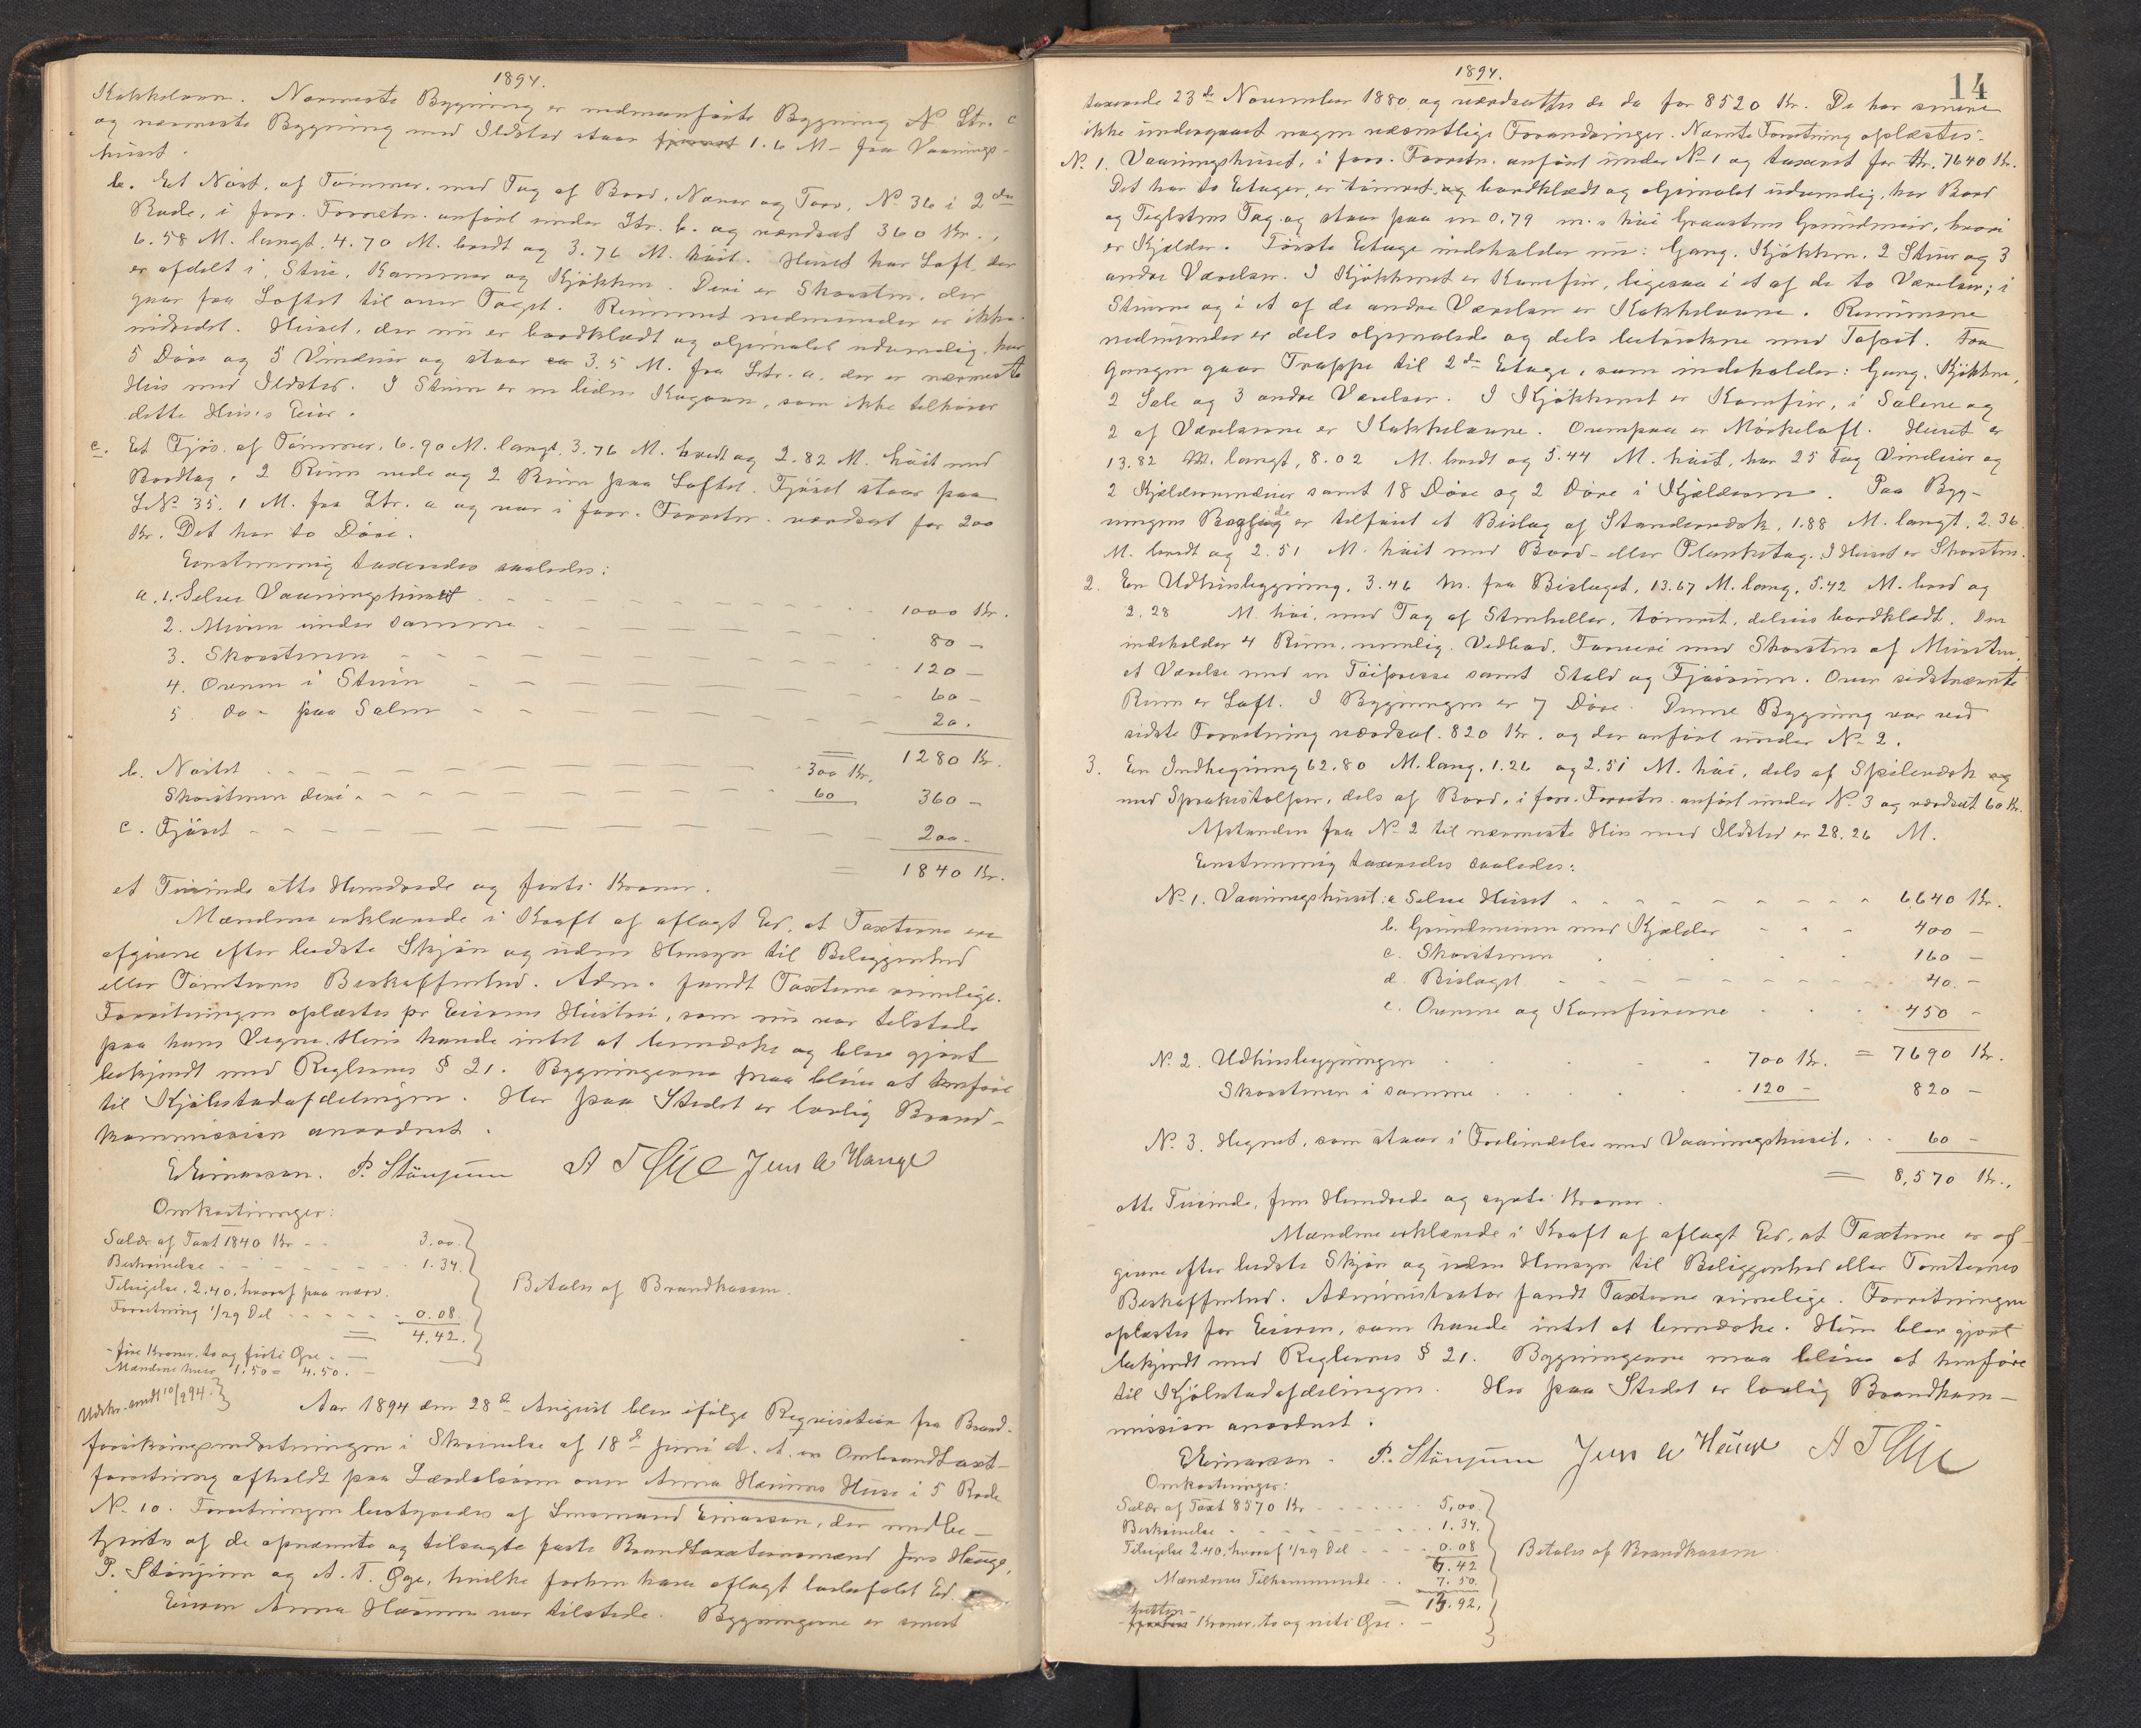 1894.
Kakkelovn. Nærmeste Bygning er nedenanførte Bygning No Ltr. c
og nærmeste Bygning med Ildsted staar 1.6 M- fra Vaanings-
huset.
b. Et Nøst, af Tømmer, med Tag af Bord, Næver og Torv, No 36 i 2den
Rode, i forr. Forretn. anført under Ltr. b. og værdsat 360 Kr.,
6.58 M. langt, 4.70 M. bredt og 3.76 M. høit. Huset har Loft, der
er afdelt i Stue, Kammer og Kjøkken. Deri er Skorsten, der
gaar fra Loftet til over Taget. Rummet nedenunder er ikke
indredet. Huset, der nu er bordklædt og oljemalet udvendig, har
5 Døre og 5 Vinduer og staar 3.5 M. fra Ltr. a. der er nærmeste
Hus med Ildsted. I Stuen er en liden Kogovn, som ikke tilhører
dette Huses Eier.
c. Et Fjøs, af Tømmer, 6.90 M. langt, 3.76 M. bredt og 2.82 M. høit med
Bordtag, 2 Rum nede og 2 Rum paa Loftet. Fjøset staar paa
LNo 35, 1 M. fra Ltr. a og var i forr. Forretn. værdsat for 200
Kr. Det har to Døre.
Enstemmig taxeredes saaledes:
a. 1. Selve Vaaningshuset 1000 Kr.
2. Muren under samme 80 -
3. Skorstenen 120 -
4. Ovnen i Stuen 60 -
5. do - paa Salen 20.
= 1280 Kr.
b. Nøstet 300 Kr.
Skorstenen deri 60 360 -
c. Fjøset 200 -
= 1840 Kr.
et Tusinde otte Hundrede og førti Kroner.
Mændene erklærede i Kraft af aflagt Ed, at Taxterne ere
afgivne efter bedste Skjøn og uden Hensyn til Beliggenhed
eller Tomternes Beskaffenhed. Adm. fandt Taxterne rimelige.
Forretningen oplæstes for Eierens Hustru, som nu var tilstede
paa hans Vegne. Hun havde intet at bemærke og blev gjort
bekjendt med Reglernes § 21. Bygningerne maa blive at henføre
til Kjøbstadafdelingen. Her paa Stedet er lovlig Brand-
kommission anordnet.
E Einarsen. P. Stønjum A T Øie Jens A Hauge
Omkostninger:
Salær af Taxt 1840 Kr - - 3.00.
Beskrivelse 1.34.
Tilsigelse, 2.40, hvoraf paa nærv.
Forretning 1/29 Del 0.08.
= 4.42.
Betales af Brandkassen.
- fire Kroner, to og firti Øre. -
Mændene hver 1.50 = 4.50. -
Udskr. sendt 10/9 94.
Aar 1894 den 28de August blev ifølge Reqvisition fra Brand-
forsikringsindretningen i Skrivelse af 18de Juni d. A. en Ombrandtaxt-
forretning afholdt paa Lærdalsøren over Anna Hærums Huse i 5 Rode
No. 10. Forretningen bestyredes af Lensmand Einarsen, der medbe-
tjentes af de opnævnte og tilsagte faste Brandtaxationsmænd Jens Hauge,
P. Stønjum og A. T. Øye, hvilke forhen have aflagt lovbefalet Ed.
Eieren Anna Hærum var tilstede. Bygningerne er senest
1894.
14
taxerede 23de November 1880 og værdsattes de da for 8520 Kr. De har senere
ikke undergaaet nogen væsentlige Forandringer. Nævnte Forretning oplæstes.
No. 1. Vaaningshuset, i forr. Forretn. anført under No 1 og taxeret for Kr. 7640 Kr.
Det har to Etager, er tømret, og bordklædt og oljemalet udvendig, har Bord
og Teglstens Tag og staar paa en 0.79 m. høi Graastens Grundmur, hvori
er Kjelder. Første Etage indeholder nu: Gang, Kjøkken, 2 Stuer og 3
andre Værelser. I Kjøkkenet er Komfur, ligesaa i et af de to Værelser; i
Stuerne og i et af de andre Værelser er Kakkelovne. Rummene
nedenunder er dels oljemalede og dels betrukne med Tapet. Fra
Gangen gaar Trappe til 2den Etage, som indeholder: Gang, Kjøkken,
2 Sale og 3 andre Værelser. I Kjøkkenet er Komfur, i Salene og
2 af Værelserne er Kakkelovne. Ovenpaa er Mørkeloft. Huset er
13.82 M. langt, 8.02 M. bredt og 5.44 M. høit, har 25 Fag Vinduer og
2 Kjældervinduer samt 18 Døre og 2 Døre i Kjælderen. Paa Byg-
ningens Bagside er tilføiet et Bislag af Standerværk, 1.88 M. langt, 2.36
M. bredt og 2.51 M. høit med Bord- eller Planketag. I Huset er Skorsten.
2. En Udhusbygning, 3.46 M. fra Bislaget, 13.67 M. lang, 5.42 M. bred og
2.28 M. høi, med Tag af Stenheller, tømret, delvis bordklædt. Den
indeholder 4 Rum, nemlig: Vedbod, Farveri med Skorsten af Mursten,
et Værelse med en Tøipresse samt Stald og Fjøsrum. Over sidstnævnte
Rum er Loft. I Bygningen er 7 Døre. Denne Bygning var ved
sidste Forretning værdsat 820 Kr. og der anført under No 2.
3. En Indhegning 62.80 M. lang, 1.26 og 2.51 M. høi, dels af Spileværk og
med Sprækstolper, dels af Bord, i forr. Forretn. anført under No. 3 og værdsat 60 Kr.
Afstanden fra No 2 til nærmeste Hus med Ildsted er 28.26 M.
Enstemmig taxeredes saaledes:
No 1. Vaaningshuset: a Selve Huset 6,640 Kr.
b. Grundmuren med Kjelder 400 -
c. Skorstenen 160 -
d. Bislaget 40. -
e. Ovnene og Komfurerne 450 -
= 7690 Kr.
No. 2. Udhusbygningen 700 Kr.
Skorstenen i samme 120 - 820 -
No. 3. Hegnet, som staar i Forbindelse med Vaaningshuset. 60 -
= 8,570 Kr.,
otte Tusinde, fem Hundrede og sytti Kroner.
Mændene erklærede i Kraft af aflagt Ed, at Taxterne er af-
givne efter bedste Skjøn og uden Hensyn til Beliggenhed eller Tomternes
Beskaffenhed. Administrator fandt Taxterne rimelige. Forretningen
oplæstes for Eieren, som havde intet at bemærke. Hun blev gjort
bekjendt med Reglernes § 21. Bygningerne maa blive at henføre
til Kjøbstadafdelingen. Her paa Stedet er lovlig Brandkom-
mission anordnet.
E Einarsen. P. Stønjum Jens A Hauge A T Øie
Omkostninger:
Salær af Taxt 8570 Kr 5,00.
Beskrivelse 1.34.
Tilsigelse 2.40, hvoraf 1/29 Del 0.08
6.42
Mændenes Tilkommende 7.50.
= 13.92.
Betales af Brandkassen
tretten
Kroner, to og niti Øre. -